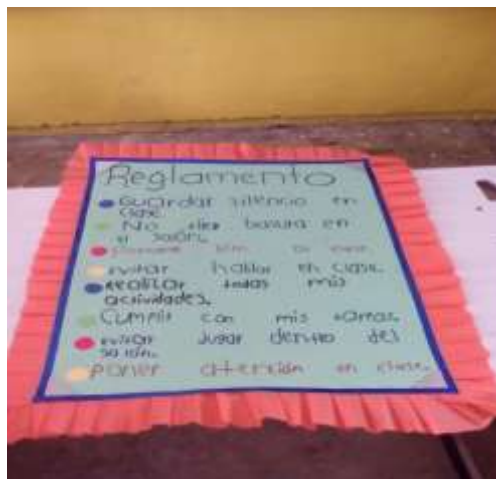 Reglamento
Guardar silencio en
clase.
No tirar basura en
el salón.
bien clase.
evitar hablar en clase.
realizar todas mis
actividades.
Cumplir con mis tareas.
evitar jugar dentro del
salón.
Poner atención en clase.